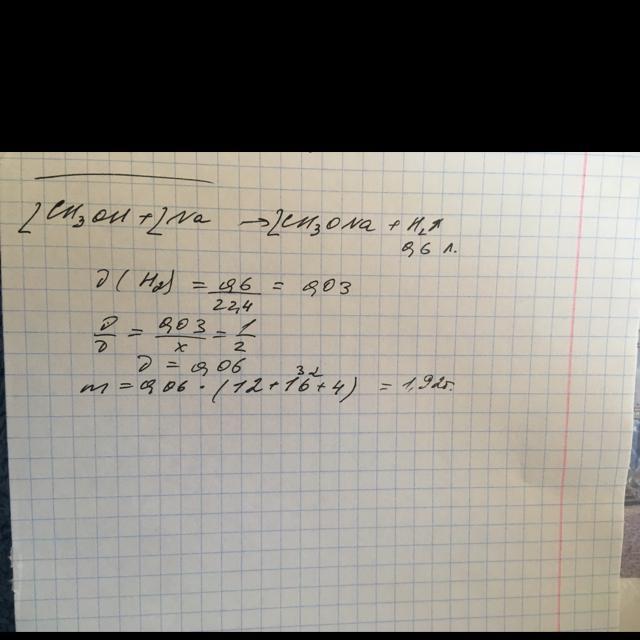 2CH₃OH + 2Na → 2CH₃ONa + H₂↑
0,6 л.
ν(H₂) = 0,6/22,4 = 0,03
ν/ν = 0,03/x = 1/2
ν = 0,06
32
m = 0,06 · (12 + 16 + 4) = 1,92г.